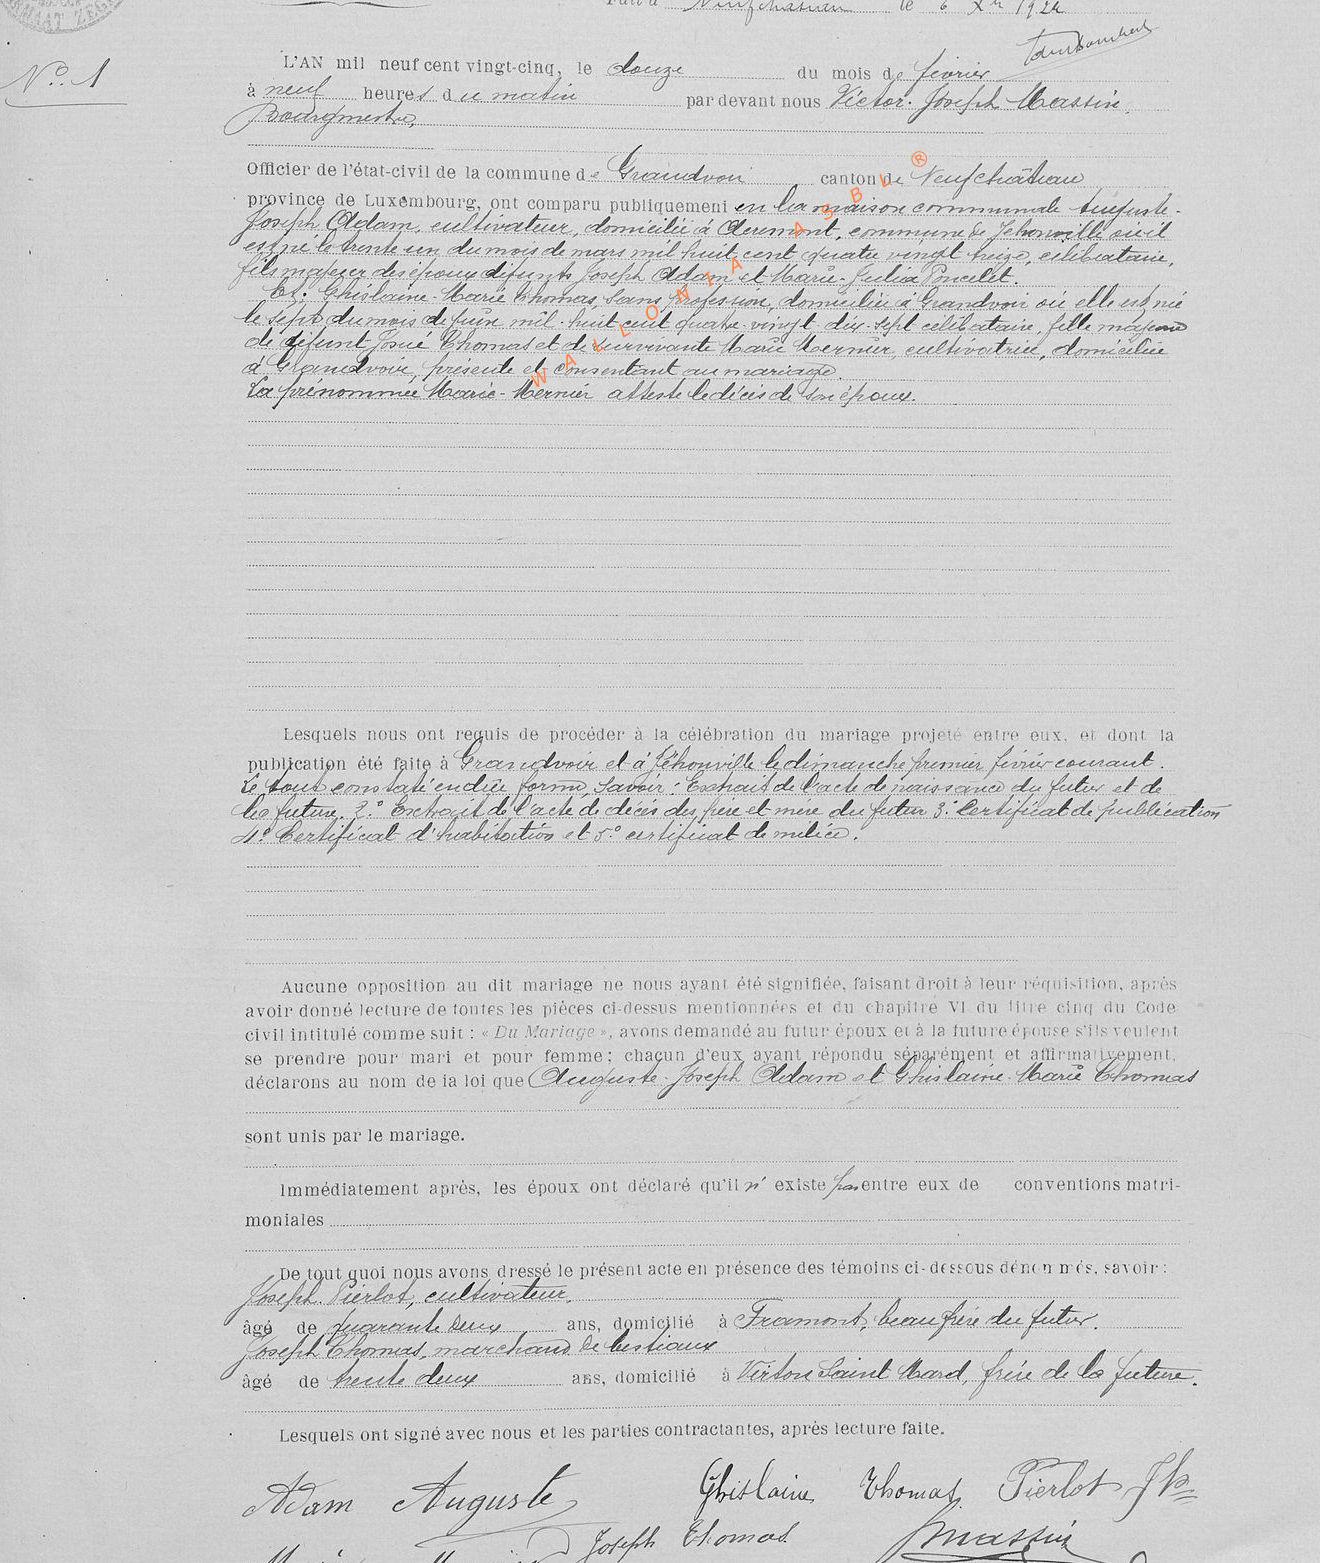 Fait à Neufchâteau le 6 Xbre 1924
MAAT ZEG
N° 1
L'AN mil neuf cent vingt-cinq, le douze du mois de février
à neuf heures du matin par devant nous Victor-Joseph Massin,
Bourgmestre,
Officier de l'état-civil de la commune de Grandvoir canton de Neufchâteau
province de Luxembourg, ont comparu publiquement en la maison communale Auguste-
Joseph Adam, cultivateur, domicilié à Acremont, commune de Jéhonville où il
est né le trente un du mois de mars mil huit cent quatre vingt treize, célibataire,
fils majeur des époux défunts Joseph Adam et Marie-Julia Poncelet.
Et: Ghislaine-Marie Thomas, sans profession, domiciliée à Grandvoir où elle est née
le sept du mois de juin mil-huit cent quatre vingt-dix-sept célibataire, fille majeure
de défunt Josué Thomas et de survivante Marie Mernier, cultivatrice, domiciliée
à Grandvoir, présente et consentant au mariage.
La prénommée Marie-Mernier atteste le décès de son époux.
WALLONIA ASBL ®
Lesquels nous ont requis de procéder à la célébration du mariage projeté entre eux, et dont la
publication été faite à Grandvoir et à Jéhonville le dimanche premier février courant.
Le tout constaté en due forme, Savoir: Extrait de l'acte de naissance du futur et de
la future. 2° Extrait de l'acte de décès des père et mère du futur 3° Certificat de publication
4° Certificat d'habitation et 5° certificat de milice.
Aucune opposition au dit mariage ne nous ayant été signifiée, faisant droit à leur réquisition, après
avoir donné lecture de toutes les pièces ci-dessus mentionnées et du chapitre VI du titre cinq du Code
civil intitulé comme suit : « Du Mariage », avons demandé au futur époux et à la future épouse s'ils veulent
se prendre pour mari et pour femme ; chacun d'eux ayant répondu séparément et affirmativement,
déclarons au nom de la loi que Auguste-Joseph Adam et Ghislaine-Marie Thomas
sont unis par le mariage.
Immédiatement après, les époux ont déclaré qu'il n' existe pas entre eux de conventions matri-
moniales
De tout quoi nous avons dressé le présent acte en présence des témoins ci-dessous dénommés, savoir :
Joseph Pierlot, cultivateur,
âgé de quarante deux ans, domicilié à Framont, beau frère du futur.
Joseph Thomas, marchand de bestiaux
âgé de trente deux ans, domicilié à Virton Saint Mard, frère de la future.
Lesquels ont signé avec nous et les parties contractantes, après lecture faite.
Adam Auguste Ghislaine Thomas Pierlot Jh
Joseph Thomas Massin